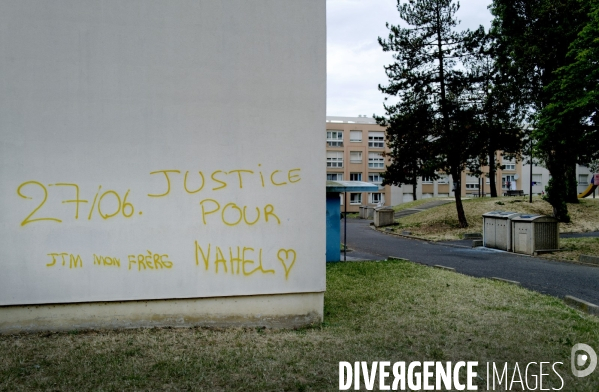 27/06. JUSTICE
POUR
JTM mon FRÈRE NAHEL ♡
DIVERGENCE IMAGES